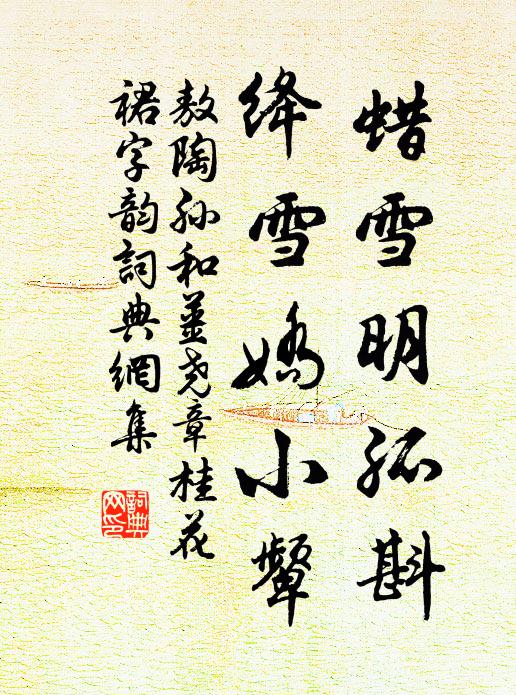 蜡雪明孤斟
绛雪娇小颦
敖陶孙和姜尧章桂花
裙字韵詞典網集
詞典网印